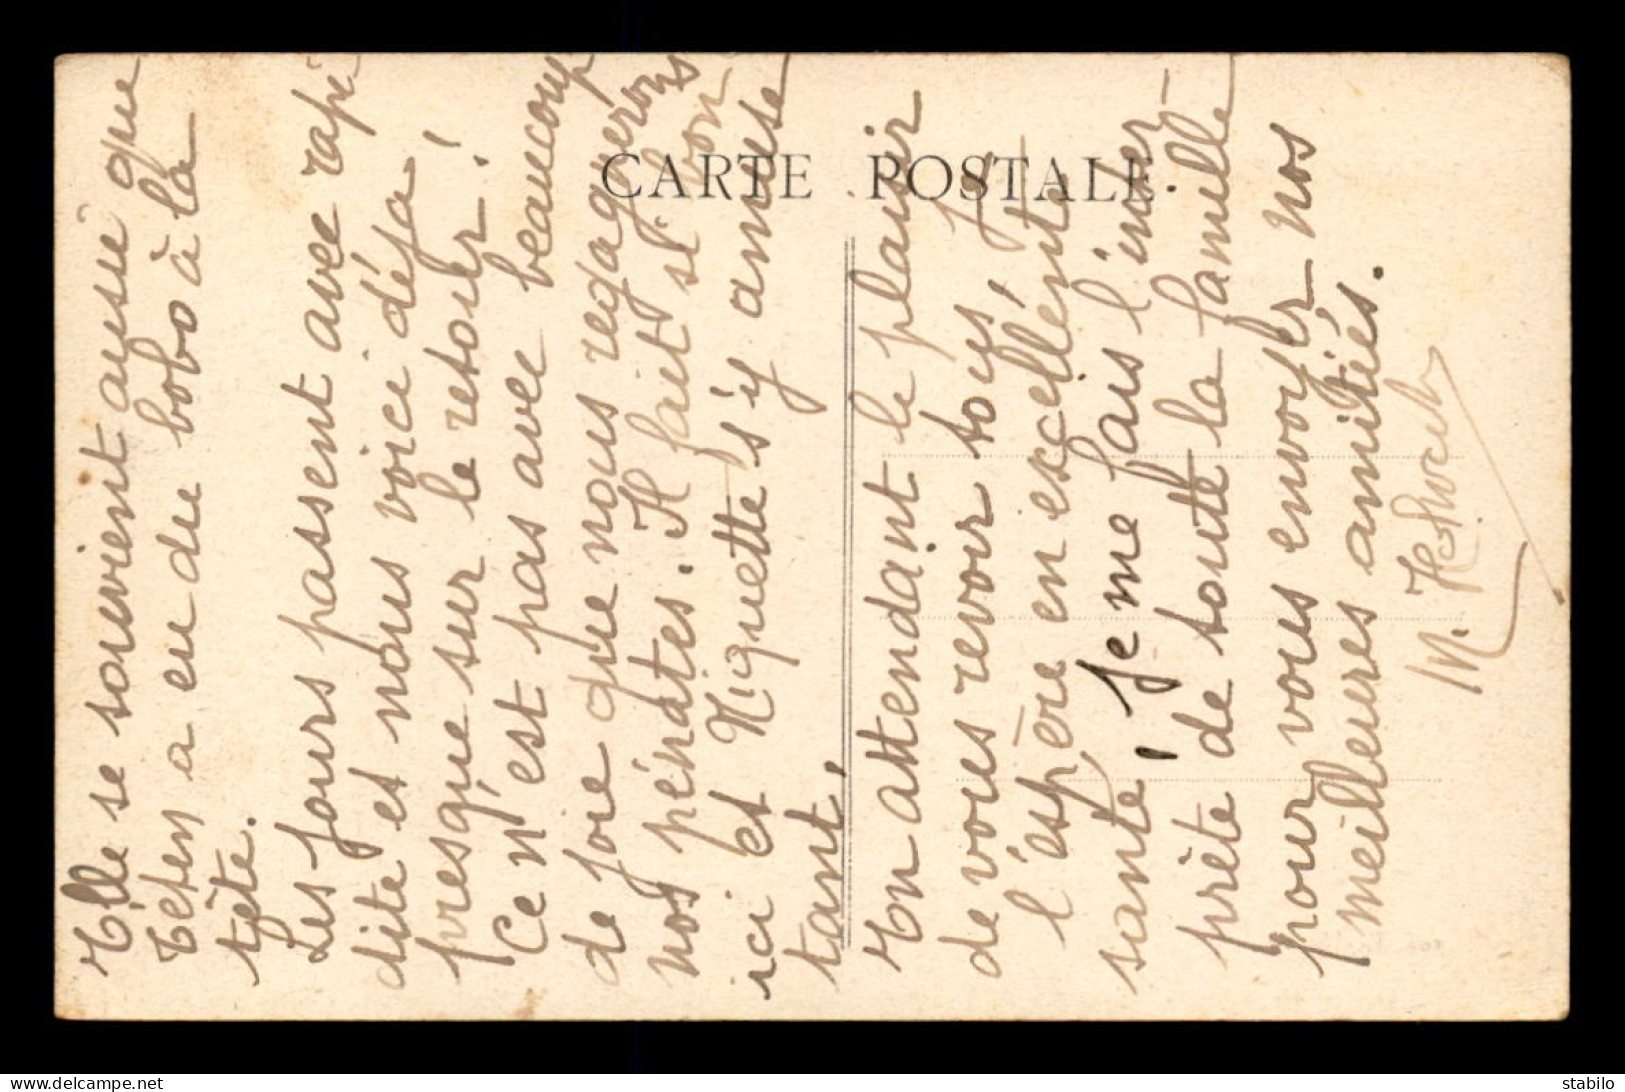 CARTE POSTALE
Elle se souvient aussi que
Teten a eu du bobo à la
tête.
Les jours passent avec rapi-
dité et nous voici déja
presque sur le retour !
Ce n'est pas avec beaucoup
de joie que nous regagnerons
nos pénates. Il fait si bon
ici et Niquette s'y amuse
tant.
En attendant le plaisir
de vous revoir tous, je
l'espère en excellente
santé, je me fais l'inter-
prète de toute la famille
pour vous envoyer nos
meilleures amitiés.
M.
stabilo